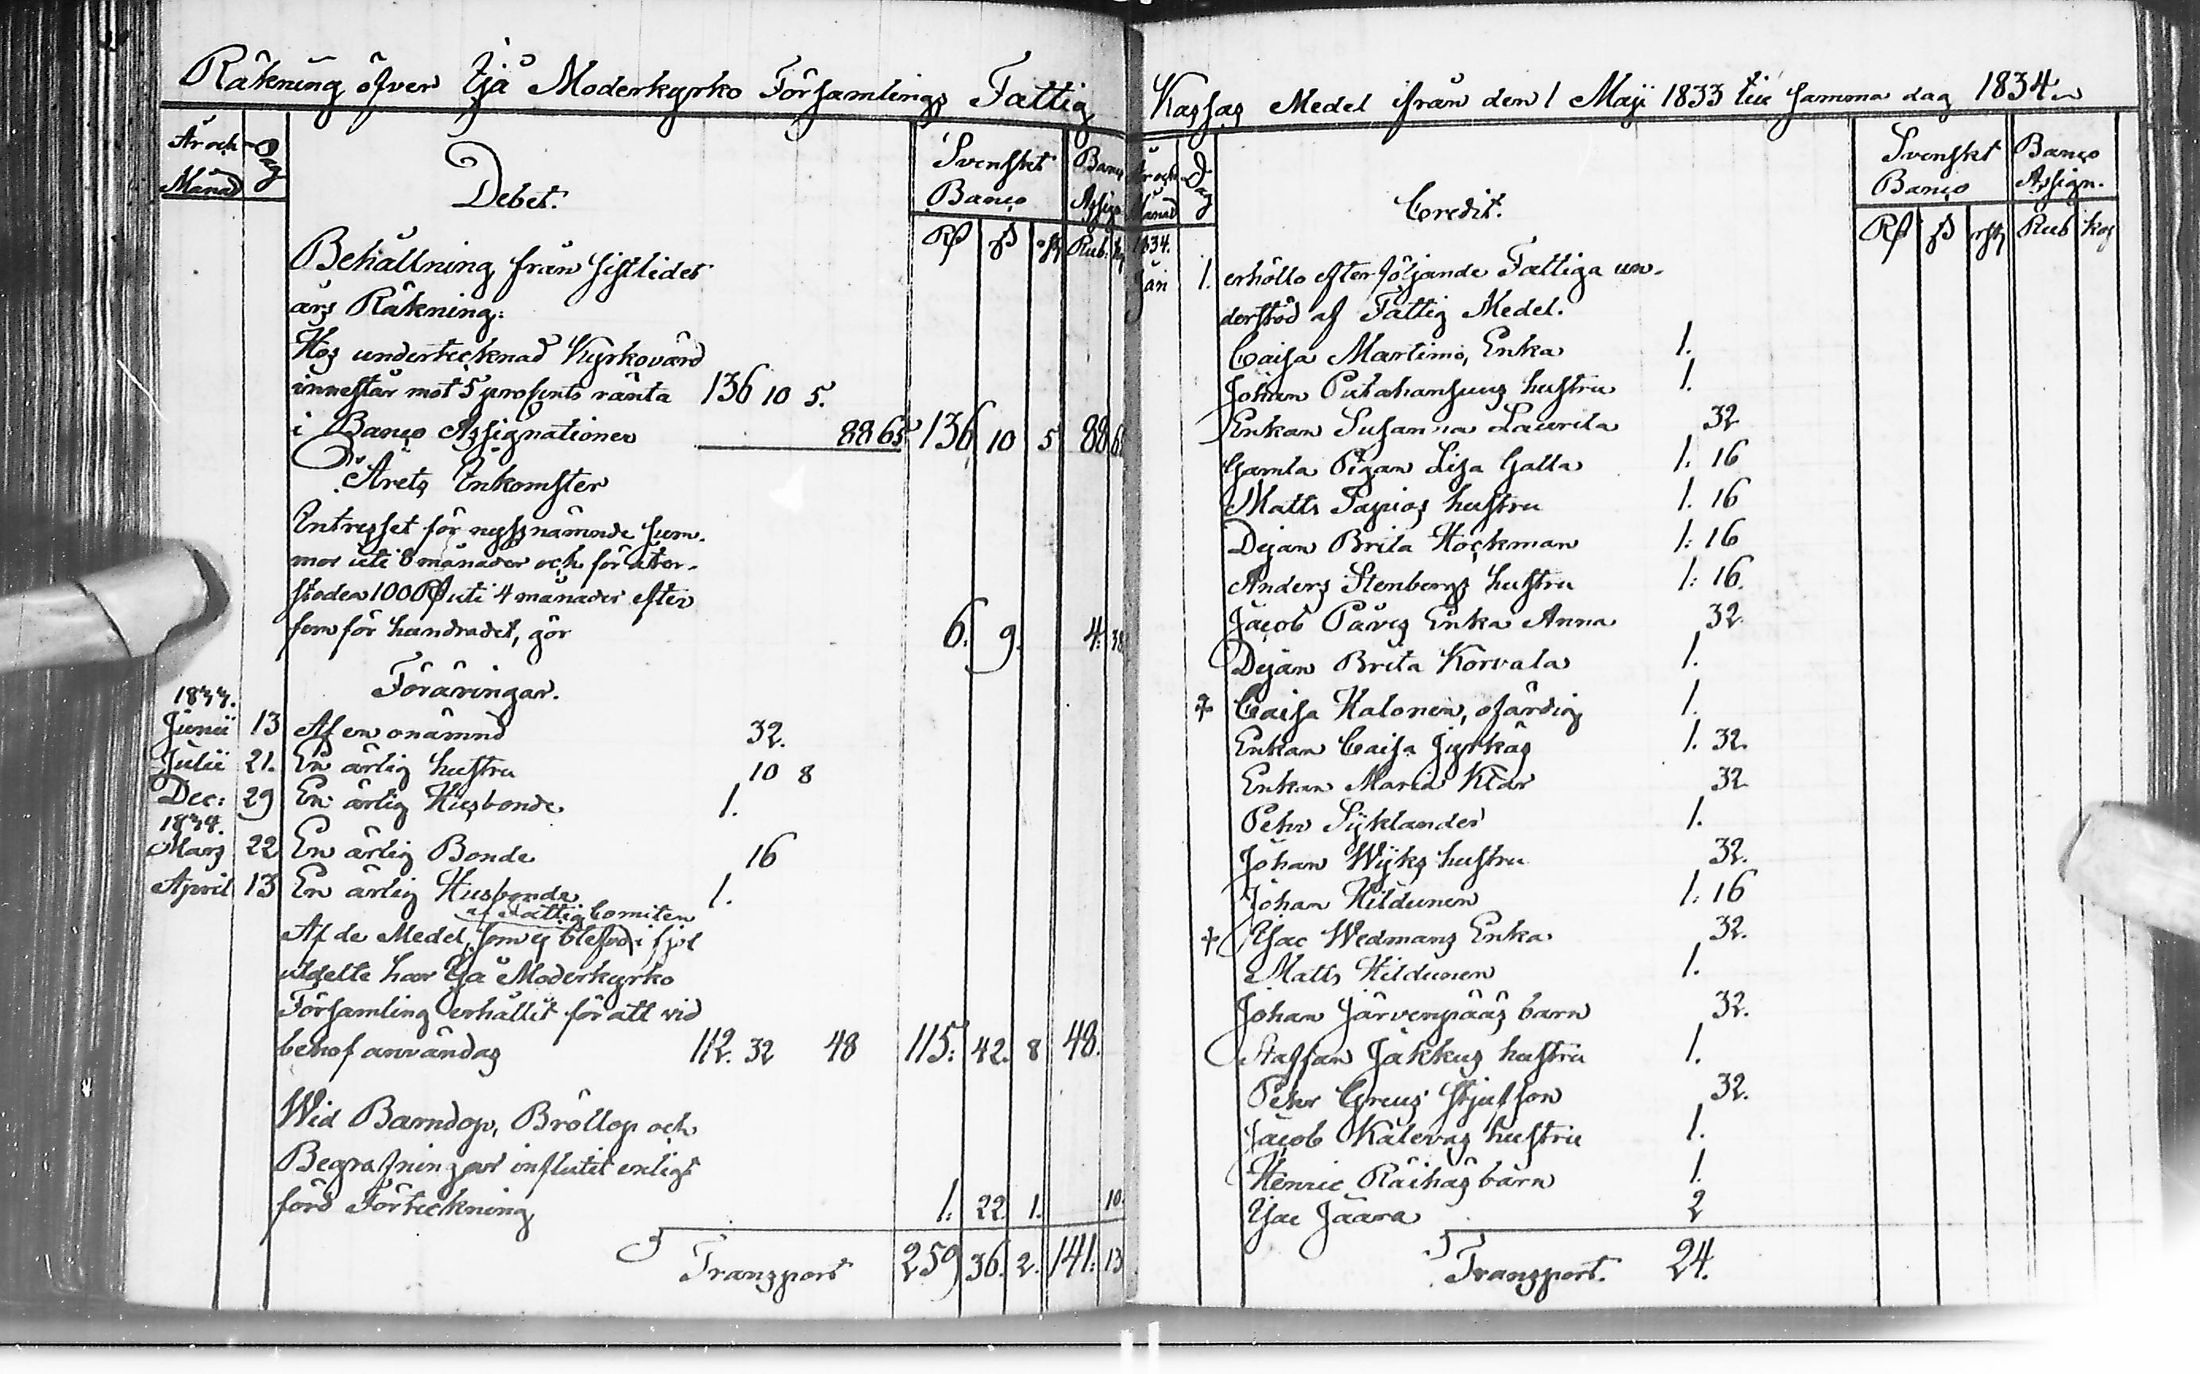 Räkning öfver Ijå Moderkyrko Församlings Fattig
År och Månad
Dag
Debet.
Svenskt Banco
Banco Assign
Rβ β rst Rub. k
Behållning från sistlidet
års Räkning:
Hos undertecknad Kyrkovärd
innestår mot 5 prosents ränta 136 10 5.
i Banco Assignationer 88 65 136 10 5 88 65
Årets Inkomster
Intresset för nyssnämnde sum-
mor uti 8 månader och för åter-
stoden 100 Rβ uti 4 månader efter
fem för hundradet, gör 6. 9. 4. 38
Föräringar.
1833.
Junii 13 Af en onämnd 32.
Julii 21. En ärlig hustru 10 8
Dec: 29 En ärlig Husbonde 1.
1834.
Mars 22 En ärlig Bonde 16
April 13 En ärlig Husbonde 1.
af Fattig Comiten
Af de Medel, som i fjol
utgette har Ijå Moderkyrko
Församling erhållit för att vid
behof användas 112. 32 48 115: 42. 8 48.
Wid Barndop, Bröllop och
Begrafningar influtit enligt
förd Förteckning 1: 22. 1. 10.
Transport 259 36. 2. 141: 13
Kassas Medel ifrån den 1 Maji 1833 till samma dag 1834.
År och Månad
Dag
Credit.
Svenskt Banco
Banco Assign.
Rβ β rst Rub kop
1834.
Jan 1. erhöllo efterföljande Fattiga un-
derstöd af Fattig Medel.
Caisa Martimo, Enka 1.
Johan hustru 1.
Enkan Susanna Laurila 32
Gamla Pigan Lisa Galla 1: 16
Matts Tapios hustru 1. 16
Dejan Brita Höckman 1: 16
Anders Stenbergs hustru 1: 16.
Jacob Påves Enka Anna 32.
Dejan Brita Korvala 1.
+ Caisa Halonen, ofärdig 1.
Enkan Caisa Jyrkäs 1. 32.
Enkan Maria Klar 32
Pehr Syklander 1.
Johan Wijks hustru 32.
Johan Hildunen 1: 16
+ Isac Wedmans Enka 32.
Matts Hildunen 1.
Johan Järvenpääs barn 32.
Staffan Jakkus hustru 1.
Pehr Greus Stjufson 32.
Jacob Kalevas hustru 1.
Henric Räihäs barn 1.
Isac Jäära 2
Transport. 24.